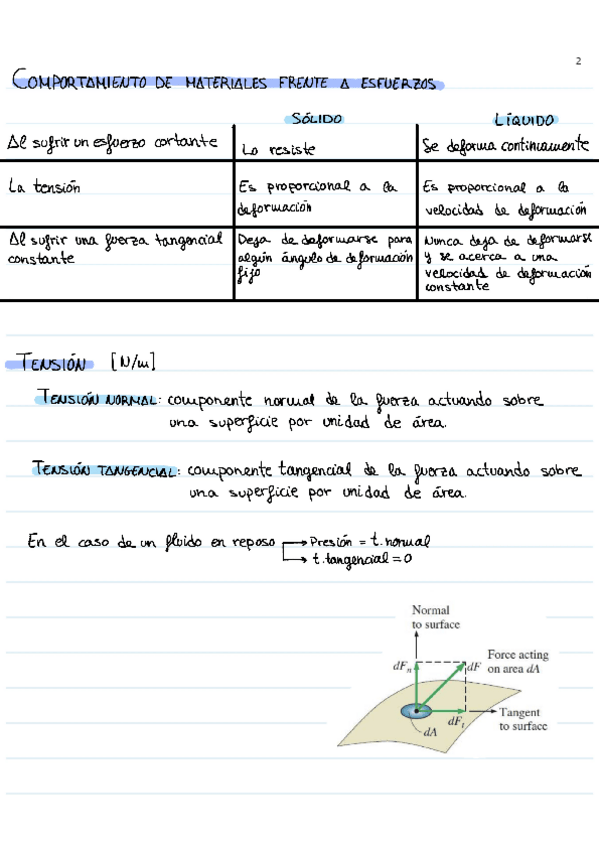 2
COMPORTAMIENTO DE MATERIALES FRENTE A ESFUERZOS
SÓLIDO LÍQUIDO
Al sufrir un esfuerzo cortante Lo resiste Se deforma continuamente
La tensión Es proporcional a la deformación Es proporcional a la velocidad de deformación
Al sufrir una fuerza tangencial constante Deja de deformarse para algún ángulo de deformación fijo Nunca deja de deformarse y se acerca a una velocidad de deformación constante
TENSIÓN [N/m]
TENSIÓN NORMAL: componente normal de la fuerza actuando sobre
una superficie por unidad de área.
TENSIÓN TANGENCIAL: componente tangencial de la fuerza actuando sobre
una superficie por unidad de área.
En el caso de un fluido en reposo → Presión = t. normal
→ t. tangencial = 0
Normal
to surface
Force acting
on area dA
dFn
dF
Tangent
to surface
dFt
dA